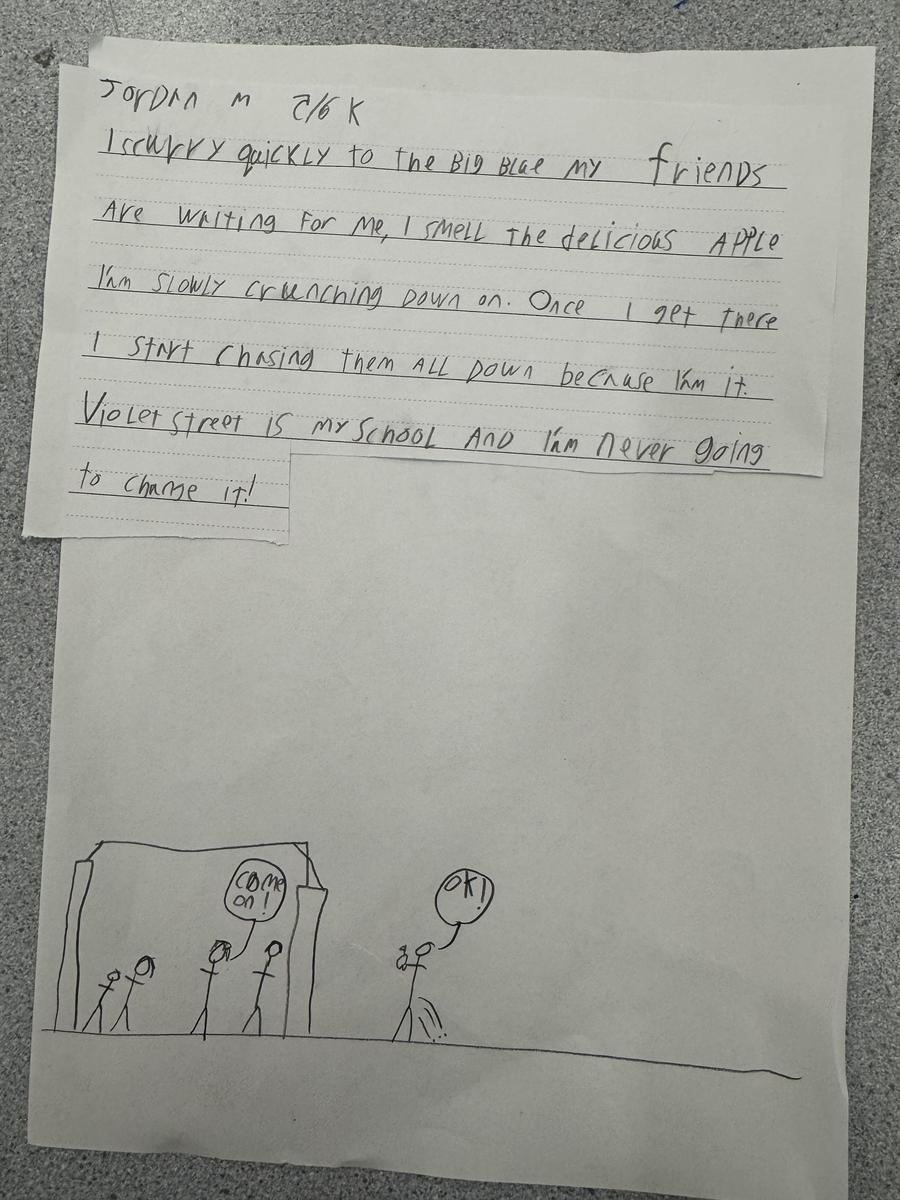 JorDAn m 5/6 K
I scurry quickly to the Big Blue my friends
Are waiting For Me, I smell the delicious Apple
I'am slowly crunching Down on. Once I get there
I start chasing them ALL Down because I'am it.
Violet street is my School And I'am never going
to change it!
come
on!
OK!